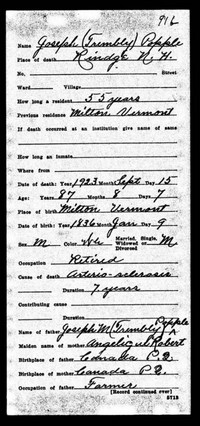 916
Name Joseph (Trembly) Popple
Place of death Rindge N. H.
No. Street
Ward Village
How long a resident 55 years
Previous residence Milton, Vermont
If death occurred at an institution give name of same
How long an inmate
Where from
Date of death: Year 1923 Month Sept Day 15
Age: Years 87 Months 8 Days 7
Place of birth Milton Vermont
Date of birth: Year 1836 Month Jan Day 9
Sex M Color Wh Married, Single, Widowed or Divorced M
Occupation Retired
Cause of death Arterio-sclerosis
Duration 7 years
Contributing cause
Duration
Name of father Joseph M (Trembly) Popple
Maiden name of mother Angelic Robert
Birthplace of father Canada P. Q.
Birthplace of mother Canada P. Q.
Occupation of father Farmer
[Record continued over]
5713